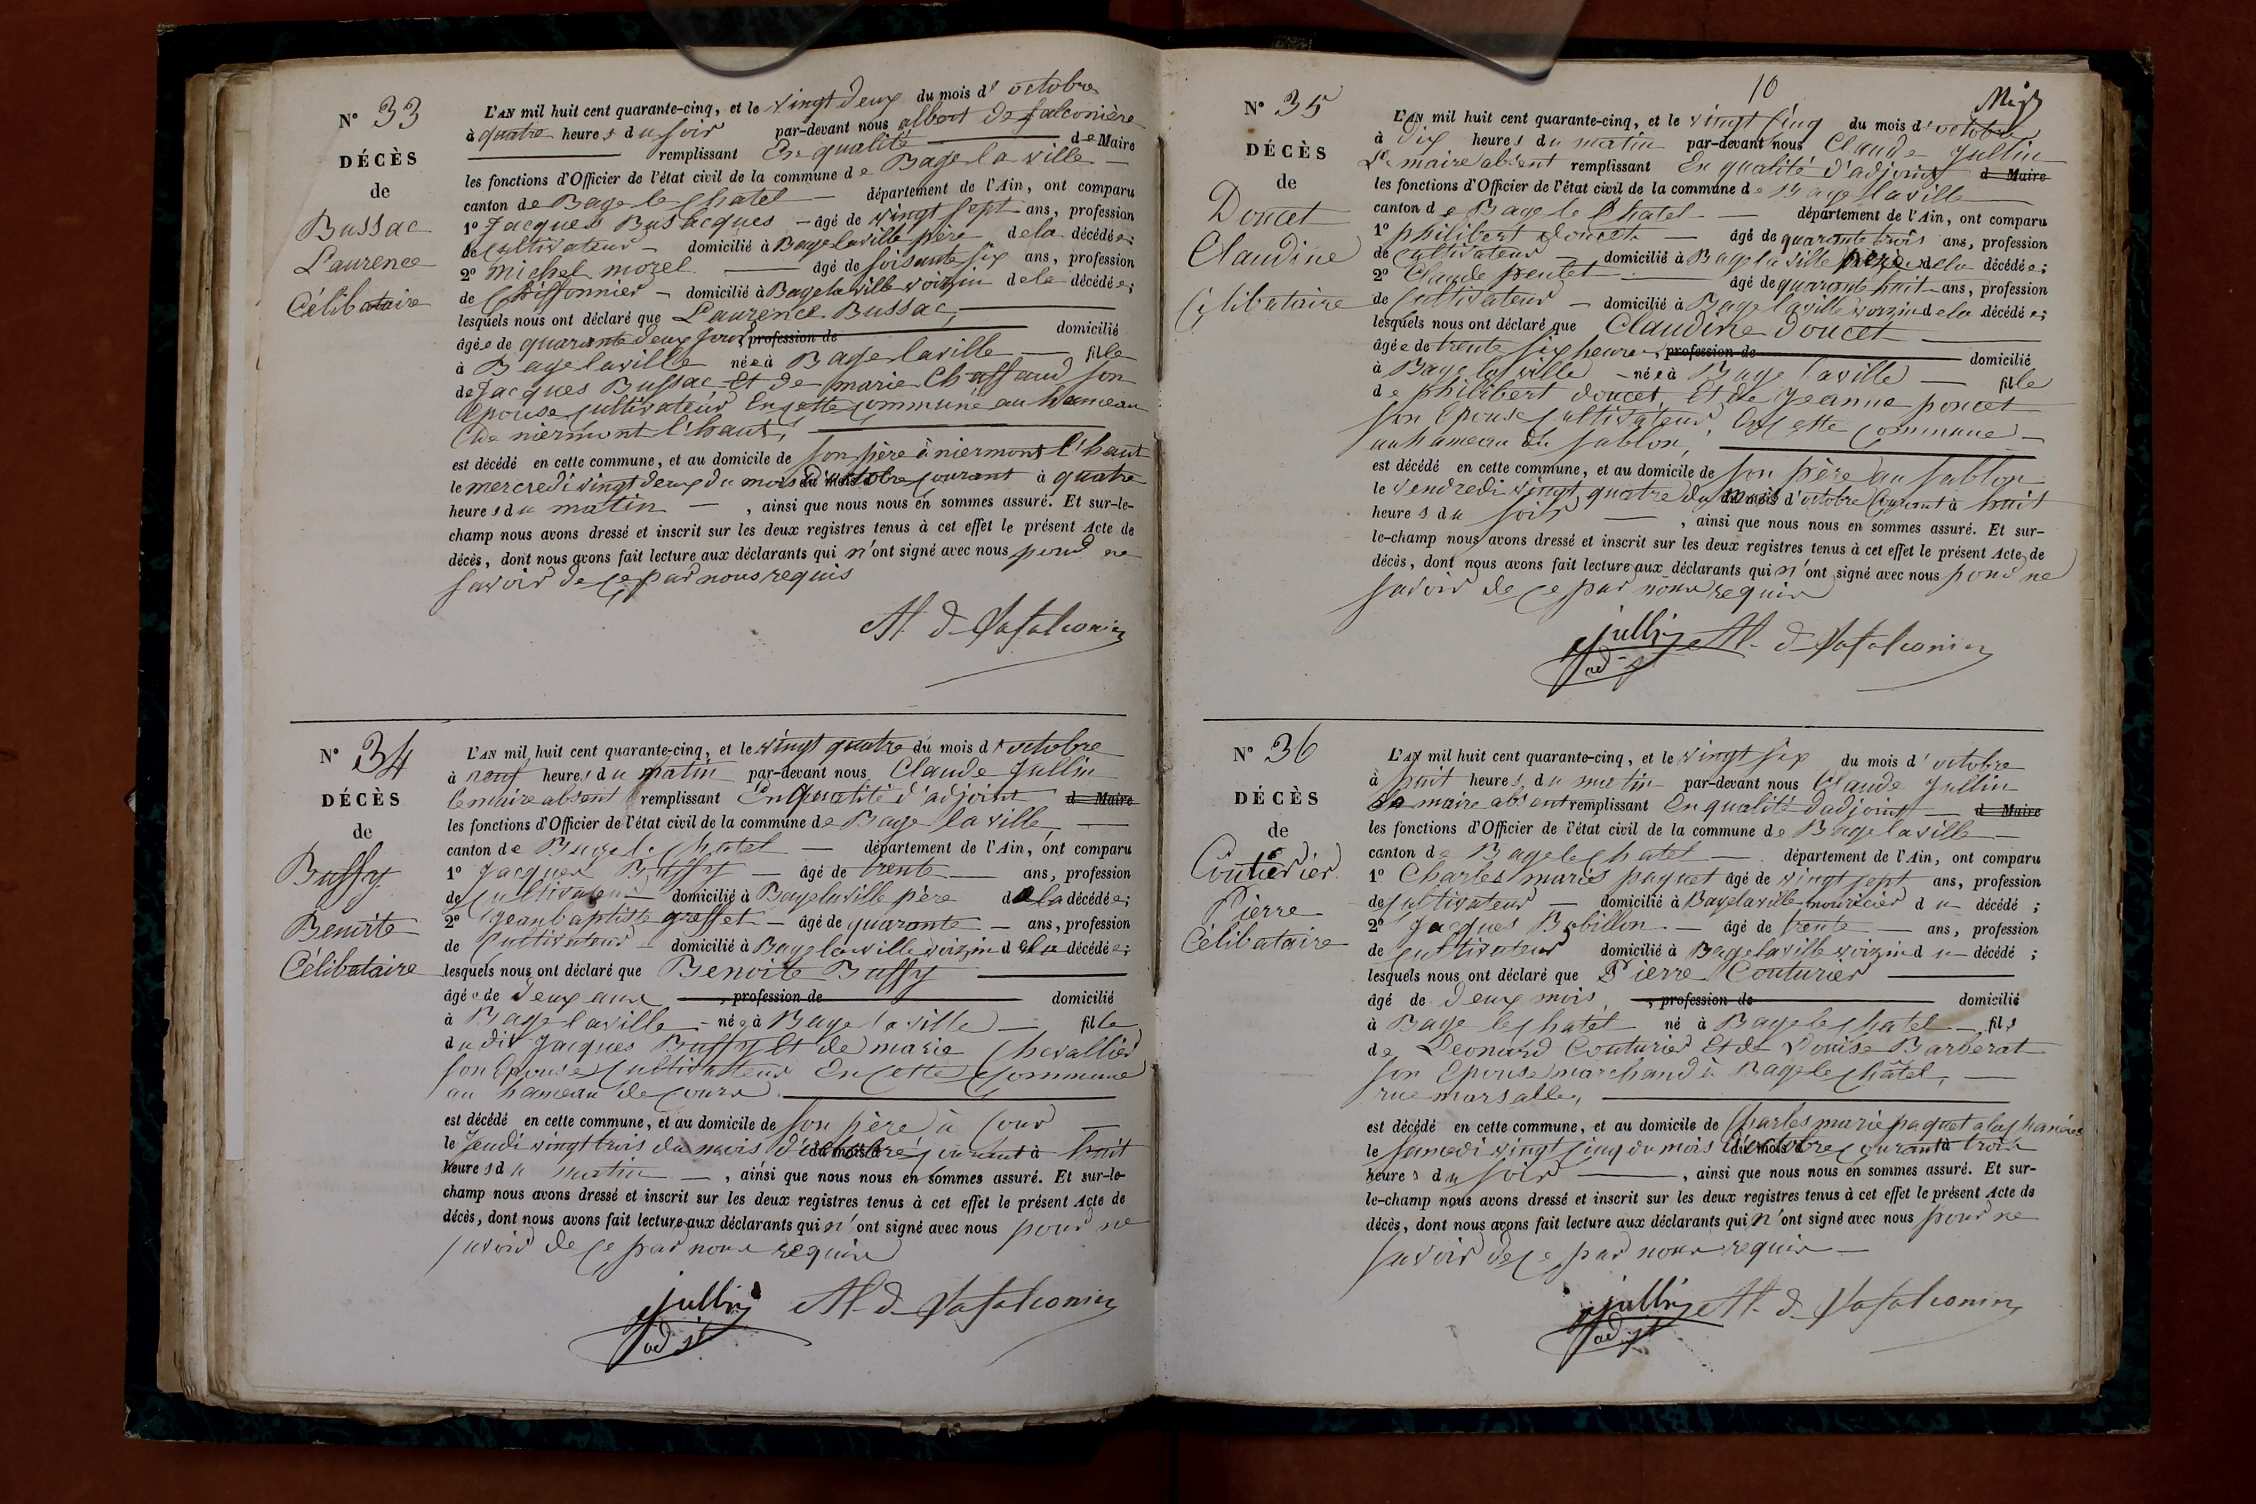 N° 33
DÉCÈS
de
Bussac
Laurence
Célibataire
L'AN mil huit cent quarante-cinq, et le vingt deux du mois d'octobre
à quatre heures du soir par-devant nous albert de falconière
remplissant En qualité de Maire
les fonctions d'Officier de l'état civil de la commune de Bage la ville
canton de Bage le chatel département de l'Ain, ont comparu
1° Jacques Bussac âgé de vingt sept ans, profession
de cultivateur domicilié à Bagelaville père de la décédée;
2° michel mozel âgé de soisante six ans, profession
de chiffonnier domicilié à Bagelaville voizin de la décédée;
lesquels nous ont déclaré que Laurence Bussac,
âgée de quarante deux jours profession de domicilié
à Bagelaville née à Bagelaville fille
de Jacques Bussac et de marie Chaffaud son
Epouse cultivateur En cette commune au hameau
de niermont l'haut,
est décédé en cette commune, et au domicile de son père à niermont l'haut
le mercredi vingt deux du mois d'octobre courant à quatre
heures du matin , ainsi que nous nous en sommes assuré. Et sur-le-
champ nous avons dressé et inscrit sur les deux registres tenus à cet effet le présent Acte de
décès, dont nous avons fait lecture aux déclarants qui n'ont signé avec nous pour ne
savoir de ce par nous requis
Al. d Lafalconière
N° 34
DÉCÈS
de
Buffy
Benoite
Célibataire
L'AN mil huit cent quarante-cinq, et le vingt quatre du mois d'octobre
à neuf heures du matin par-devant nous Claude Jullin
le maire absent remplissant En qualité d'adjoint d Maire
les fonctions d'Officier de l'état civil de la commune de Bage la ville
canton de Bage le chatel département de l'Ain, ont comparu
1° Jacques Buffy âgé de trente ans, profession
de cultivateur domicilié à Bagelaville père de la décédée;
2° jean baptiste greffet âgé de quarante ans, profession
de cultivateur domicilié à Bagelaville voizin de la décédée;
lesquels nous ont déclaré que Benoite Buffy
âgée de deux ans , profession de domicilié
à Bagelaville née à Bage la ville fille
du dit Jacques Buffy et de marie Chevallier
son Epouse cultivateur En cette commune
au hameau de cours
est décédé en cette commune, et au domicile de son père à cour
le Jeudi vingt trois du mois d'octobre courant à huit
heures du matin , ainsi que nous nous en sommes assuré. Et sur-le-
champ nous avons dressé et inscrit sur les deux registres tenus à cet effet le présent Acte de
décès, dont nous avons fait lecture aux déclarants qui n'ont signé avec nous pour ne
savoir de ce par nous requis
jullin adjt Al. d Lafalconière
10
N° 35
DÉCÈS
de
Doucet
Claudine
Célibataire
L'AN mil huit cent quarante-cinq, et le vingt cinq du mois d'octobre
à dix heures du matin par-devant nous Claude Jullin
Le maire absent remplissant En qualité d'adjoint d Maire
les fonctions d'Officier de l'état civil de la commune de Bage la ville
canton de Bage le Chatel département de l'Ain, ont comparu
1° philibert doucet âgé de quarante trois ans, profession
de cultivateur domicilié à Bagelaville père de la décédée;
2° Claude âgé de quarante huit ans, profession
de cultivateur domicilié à Bagelaville voizin de la décédée;
lesquels nous ont déclaré que Claudine doucet
âgée de trente six heures, profession de domicilié
à Bage la ville née à Bage laville fille
de philibert doucet et de Jeanne poncet
son Epouse cultivateur, En cette commune
au hameau du sablon,
est décédé en cette commune, et au domicile de son père au sablon
le vendredi vingt quatre du mois d'octobre courant à huit
heures du soir , ainsi que nous nous en sommes assuré. Et sur-
le-champ nous avons dressé et inscrit sur les deux registres tenus à cet effet le présent Acte de
décès, dont nous avons fait lecture aux déclarants qui n'ont signé avec nous pour ne
savoir de ce par nous requis
jullin adjt Al. d Lafalconière
N° 36
DÉCÈS
de
Couturier
Pierre
Célibataire
L'AN mil huit cent quarante-cinq, et le vingt six du mois d'octobre
à huit heures du matin par-devant nous Claude Jullin
Le maire absent remplissant En qualité d'adjoint d Maire
les fonctions d'Officier de l'état civil de la commune de Bagelaville
canton de Bagelechatel département de l'Ain, ont comparu
1° Charles marie paquet âgé de vingt sept ans, profession
de cultivateur domicilié à Bagelaville nouricier du décédé ;
2° Jacques Bobillon âgé de trente ans, profession
de cultivateur domicilié à Bagelaville voizin du décédé ;
lesquels nous ont déclaré que Pierre Couturier
âgé de deux mois, profession de domicilié
à Bage lechatel né à Bagelechatel fils
de Leonard Couturier Et de Louise Barberat
son Epouse marchand à Bagelechatel,
rue marsalle,
est décédé en cette commune, et au domicile de Charles marie paquet
le samedi vingt cinq du mois d'octobre courant à trois
heures du soir , ainsi que nous nous en sommes assuré. Et sur-
le-champ nous avons dressé et inscrit sur les deux registres tenus à cet effet le présent Acte de
décès, dont nous avons fait lecture aux déclarants qui n'ont signé avec nous pour ne
savoir de ce par nous requis
jullin adjt Al. d Lafalconière